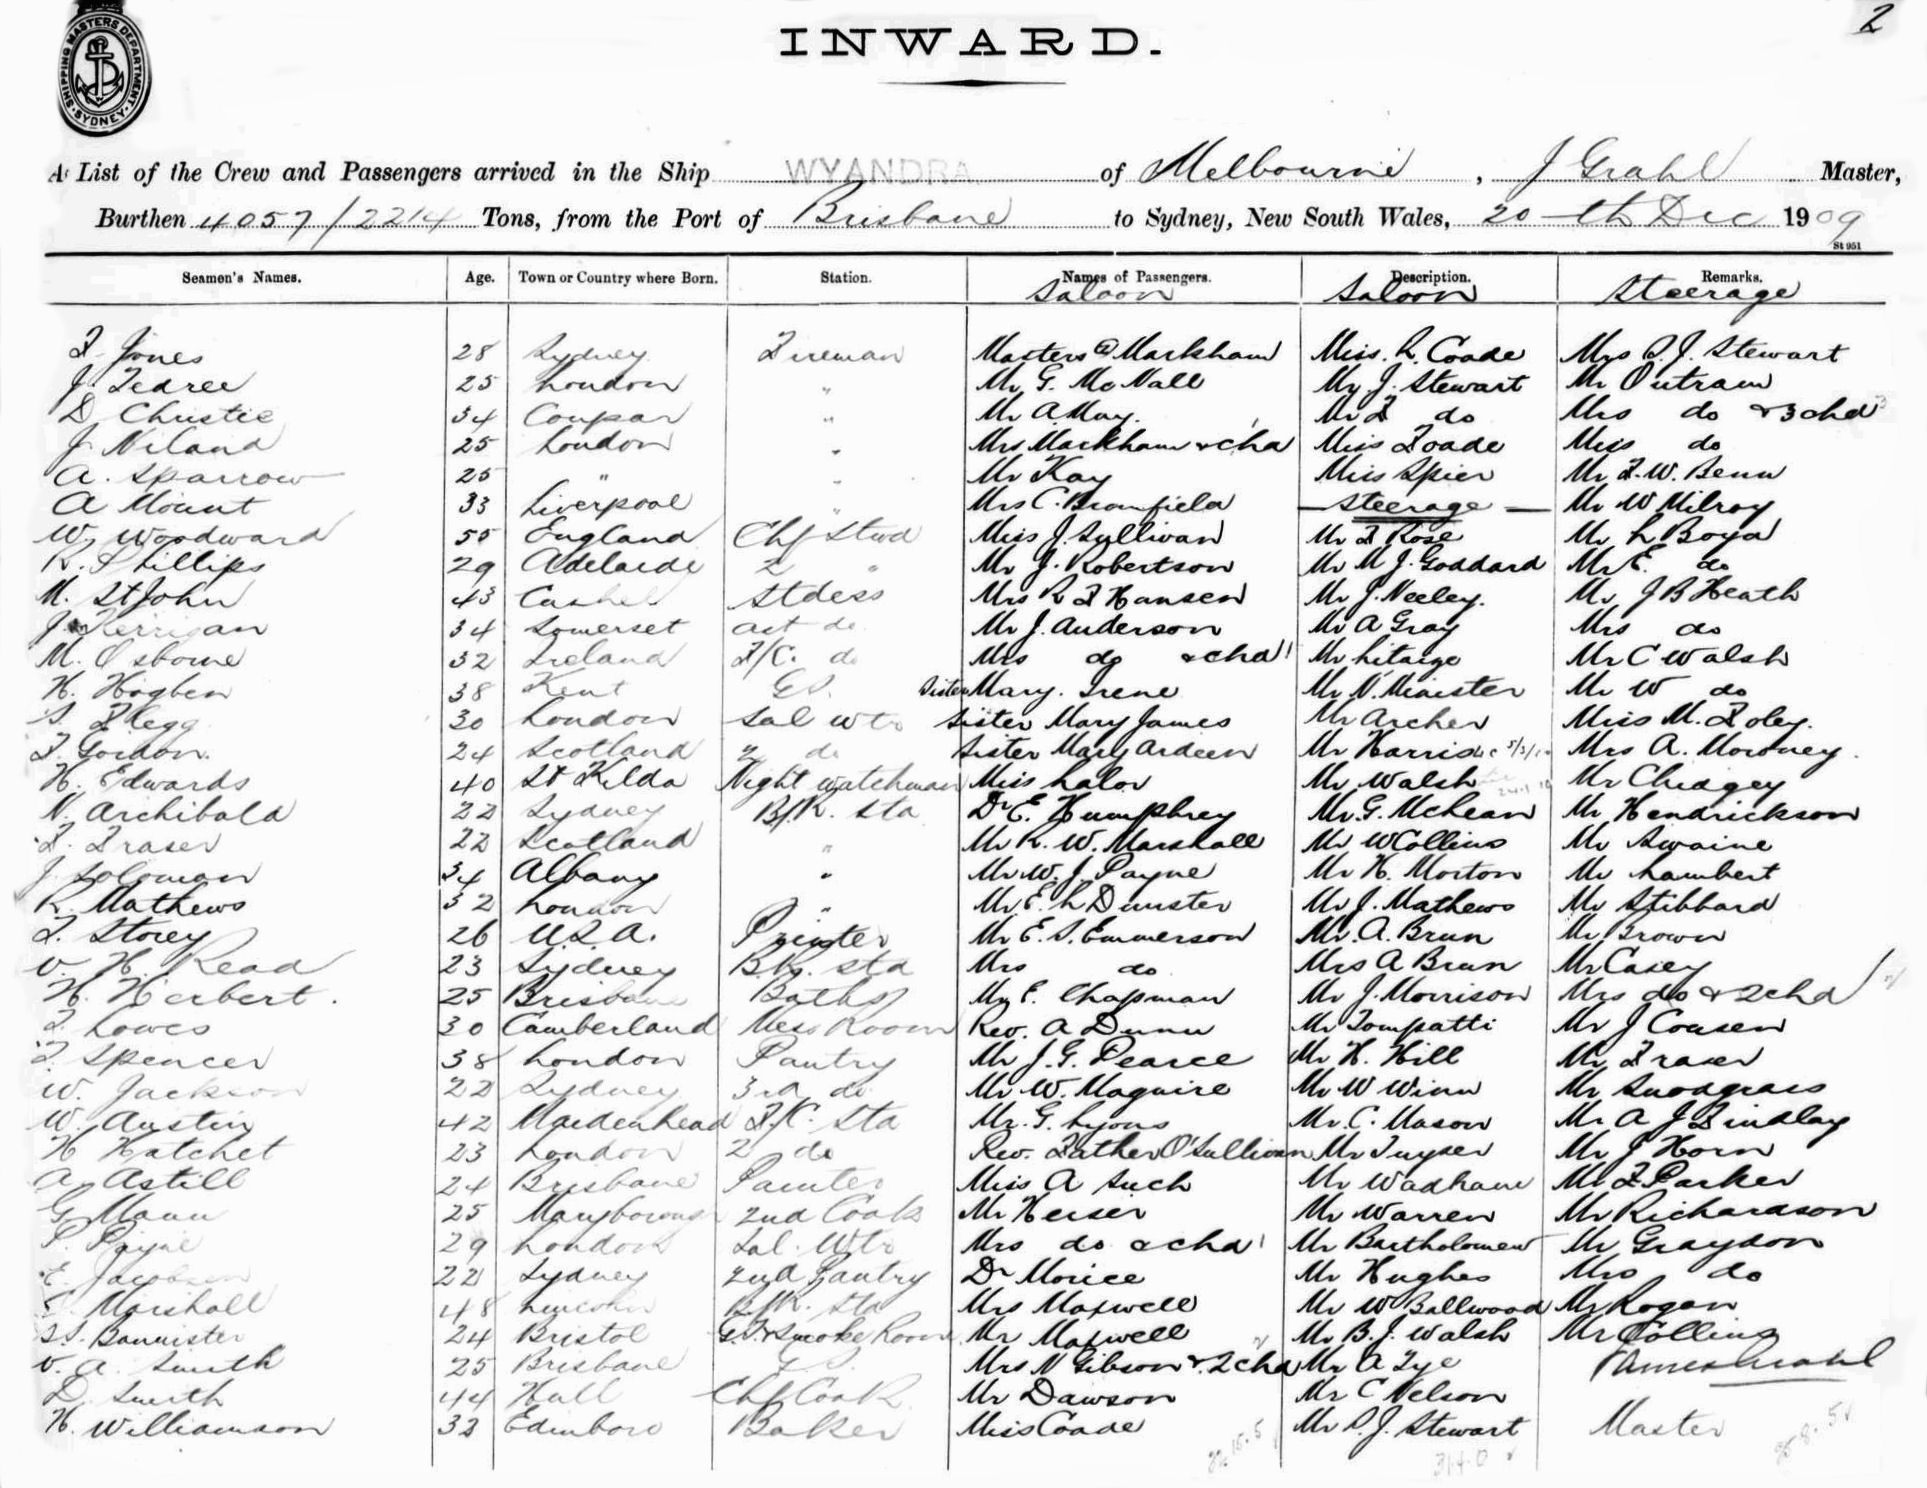 2
SHIPPING MASTERS DEPARTMENT SYDNEY
INWARD.
A List of the Crew and Passengers arrived in the Ship WYANDRA of Melbourne, J Grahl Master,
Burthen 4057/2214 Tons, from the Port of Brisbane to Sydney, New South Wales, 20th Dec 1909
St 951
Seamen's Names. Age. Town or Country where Born. Station. Names of Passengers. Description. Remarks.
Saloon Saloon Steerage
F. Jones 28 Sydney Fireman Masters @ Markham Miss. L. Coade Mrs S. J. Stewart
J. Fedree 25 London " Mr G. McNall Mr J. Stewart Mr Outram
D Christie 34 Coupar " Mr A. May. Mr F do Mrs do & 3 chd
J. Niland 25 London " Mrs Markham & chd Miss Foade Miss do
A. Sparrow 25 " " Mr Kay Miss Spier Mr F. W. Benn
A Mount 33 Liverpool " Mrs C. Bromfield Steerage Mr W Milroy
W. Woodward 55 England Chf Stwd Miss J. Sullivan Mr F Rose Mr L Boyd
R. Phillips 29 Adelaide 2 " Mr J. Robertson Mr M J. Goddard Mr E. do
M. St John 43 Cashel Stdess Mrs R F Hansen Mr J. Neeley. Mr J B Heath
J Kerrigan 34 Somerset ast do Mr J. Anderson Mr A Gray Mrs do
M. Osborne 32 Ireland F/C. do Mrs do & chd Mr Mr C Walsh
H. Hogben 38 Kent G.S. Sister Mary. Irene Mr N. Minister Mr W do
S. Flegg 30 London Sal wtr Sister Mary James Mr Archer Miss M. Foley.
F. Gordon. 24 Scotland 2 do Sister Mary Ardeen Mr Harris Mrs A. Moroney.
H. Edwards 40 St Kilda Night watchman Miss Lalor Mr Walsh Mr Chidgey
N. Archibald 22 Sydney B/R. Std Dr E. Humphrey Mr. G. McLean Mr Hendrickson
F. Fraser 22 Scotland " Mr R. W. Marshall Mr W Collins Mr Swaine
J. Soloman 34 Albany " Mr W. J. Payne Mr H. Morton Mr Lambert
R. Mathews 32 London " Mr E. L Dunster Mr J. Mathews Mr Stibbard
F. Storey 26 U.S.A. Printer Mr E. S. Emmerson Mr. A. Brun Mr Brown
V. H. Read 23 Sydney B.R. Std Mrs do Mrs A Brun Mr Casey
H. Herbert. 25 Brisbane Baths Mr E. Chapman Mr J. Morrison Mrs do & 2 chd
F. Lowes 30 Camberland Mess Room Rev. A Dunn Mr Tompatti Mr J Cousen
F. Spencer 38 London Pantry Mr J. G. Pearce Mr H. Hill Mr Fraser
W. Jackson 22 Sydney 3rd do Mr W. Maguire Mr W Winn Mr Snodgrass
W. Austin 42 Maidenhead F.C. Std Mr. G. Lyons Mr. C. Mason Mr A J Findlay
H Hatchet 23 London 2 do Rev. Father O'Sullivan Mr Tuyser Mr J Horn
A. Astill 24 Brisbane Painter Miss A Such Mr Wadham Mr F Parker
G. Mann 25 Maryborough 2nd Cook Mr Heiser Mr Warren Mr Richardson
P. Payne 29 London Sal. Wtr Mrs do & chd Mr Bartholomew Mr Graydon
E. Jacobsen 22 Sydney 2nd Pantry Dr Morice Mr Hughes Mrs do
C. Marshall 48 Lincoln B/R. Std Mrs Maxwell Mr W Ballwood Mr Rogan
S. S. Bannister 24 Bristol G.S. & Smoke Room Mr Maxwell Mr B. J. Walsh Mr Collins
V. A. Smith 25 Brisbane Mrs N Gibson & 2 chd Mr A Tye James Grahl
D. Smith 44 Hull Chf Cook Mr Dawson Mr C Nelson
H. Williamson 32 Edinboro Baker Miss Coade Mr S. J. Stewart Master